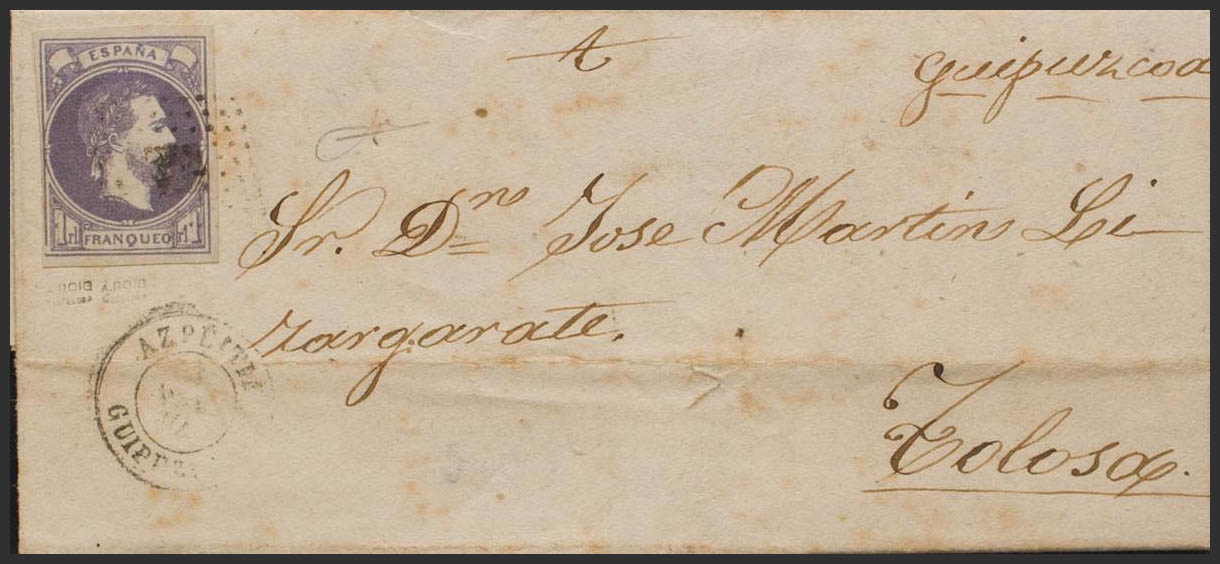 ESPAÑA
1 rl FRANQUEO rl 1
A
Guipuzcoa
Sr. Dn Jose Martin Li
zargarate.
Tolosa.
ROIG Y ROIG
AZPEITIA
GUIPUZ